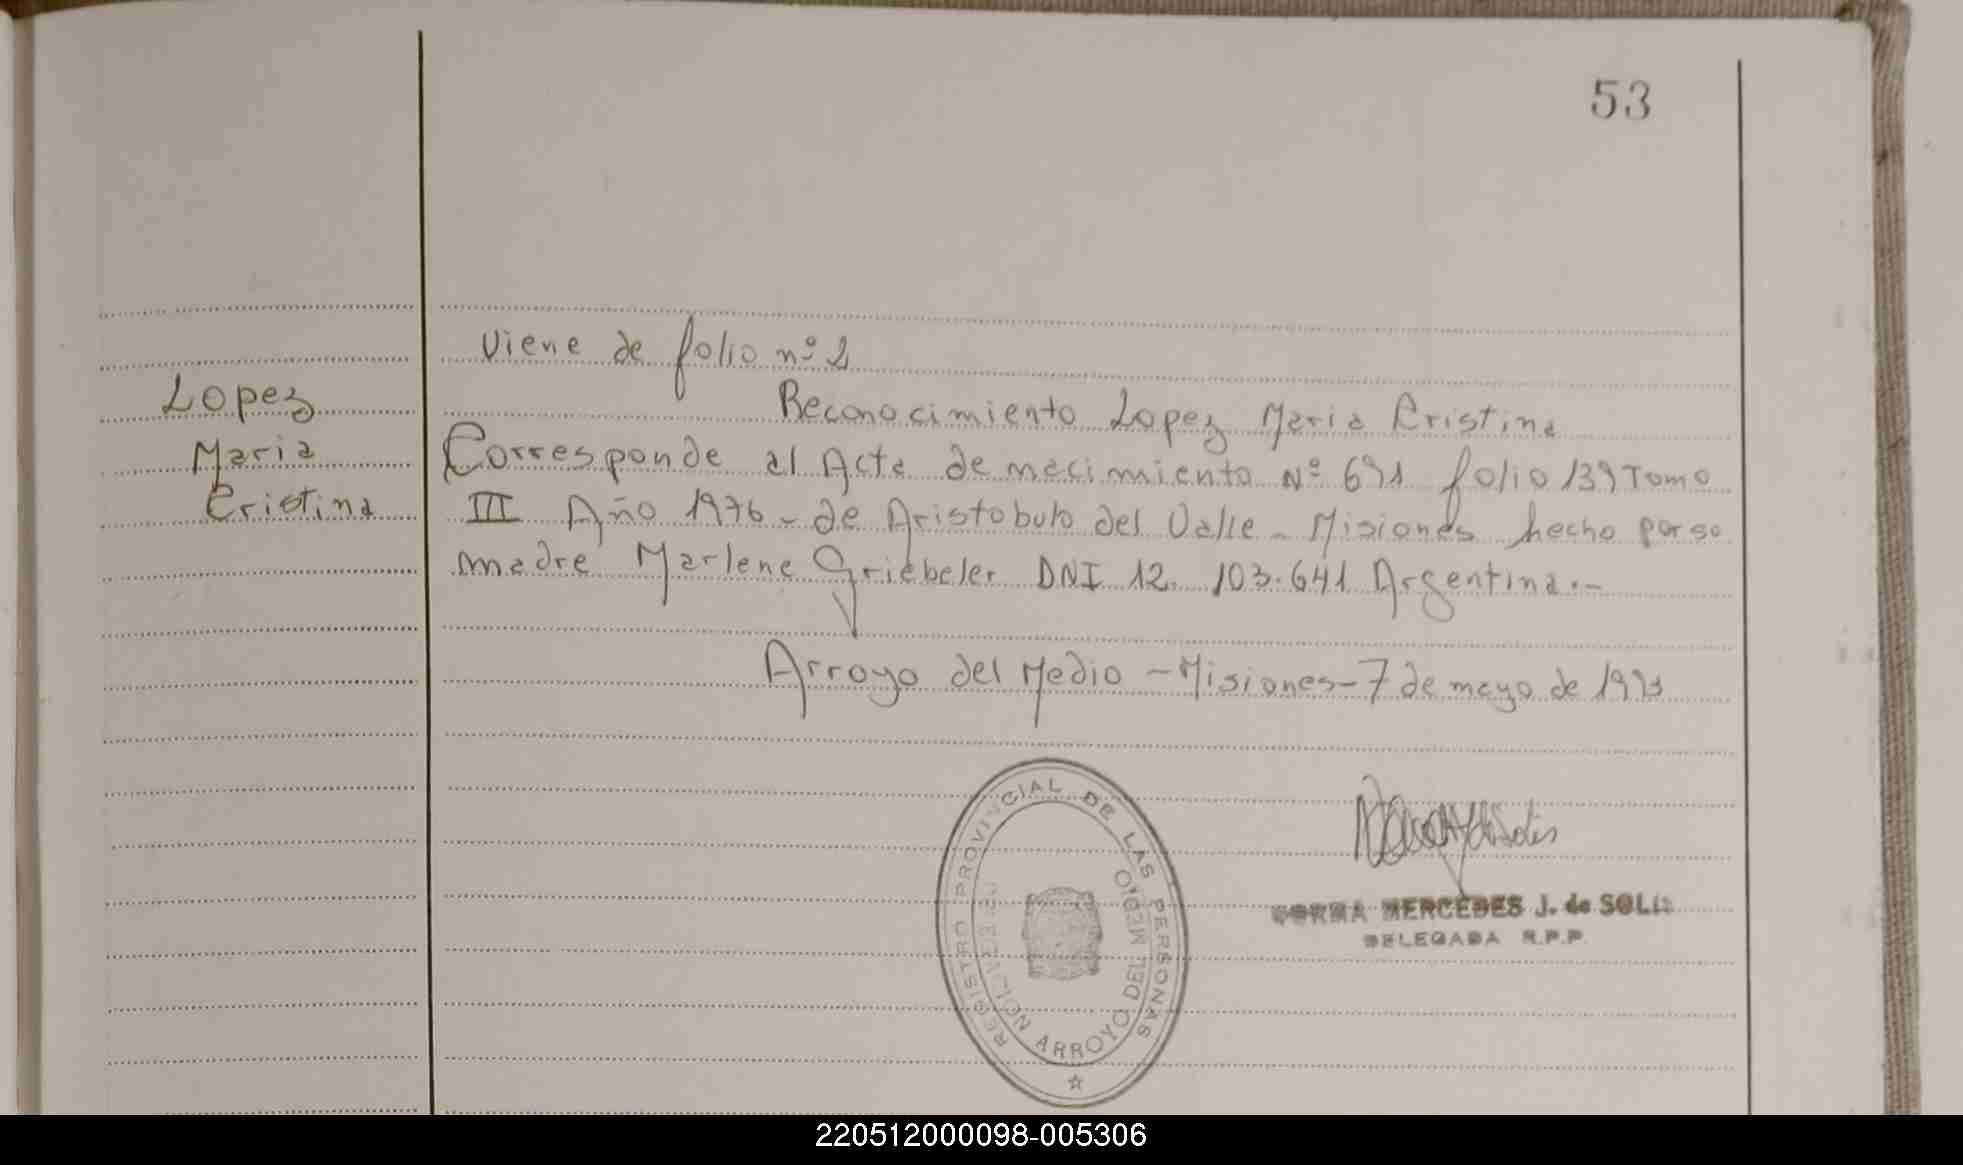 53
Viene de folio nº 2
Lopez
Maria
Cristina
Reconocimiento Lopez Maria Cristina
Corresponde al Acta de nacimiento Nº 691 folio 139 Tomo
III Año 1976 - de Aristobulo del Valle - Misiones hecho por su
madre Marlene Griebeler DNI 12.103.641 Argentina.-
Arroyo del Medio - Misiones - 7 de mayo de 1993
REGISTRO PROVINCIAL DE LAS PERSONAS
ARROYO DEL MEDIO
NORMA MERCEDES J. de SOLIS
DELEGADA R.P.P.
220512000098-005306